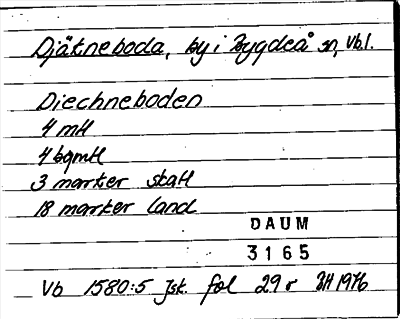 Djäkneboda, by i Bygdeå sn, Vbl.
Diechneboden
4 mtl
4 bqmtl
3 marker skatt
18 marker land
DAUM
3165
Vb 1580:5 Jsk. fol 29 r BH 1976